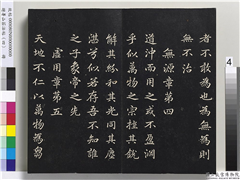 者不敢為也為無為則
無不治
無源章第四
道沖而用之或不盈淵
乎似萬物之宗挫其銳
解其紛和其光同其塵
湛兮似若存吾不知誰
之子象帝之先
虛用章第五
天地不仁以萬物為芻
4